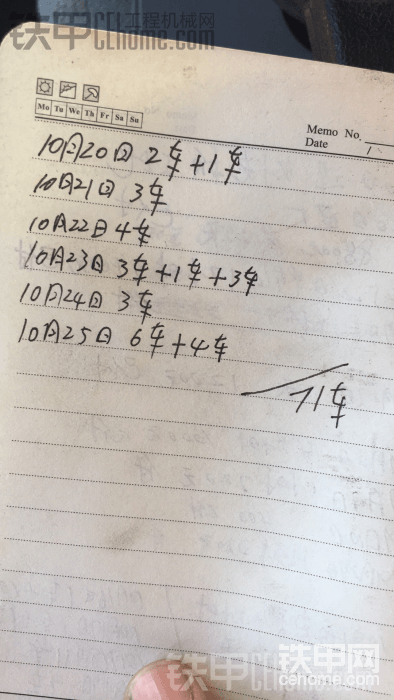 铁甲工程机械网
cehome.com
Mo Tu We Th Fr Sa Su
Memo No.
Date
10月20日 2车+1车
10月21日 3车
10月22日 4车
10月23日 3车+1车+3车
10月24日 3车
10月25日 6车+4车
71车
铁甲网
cehome.com